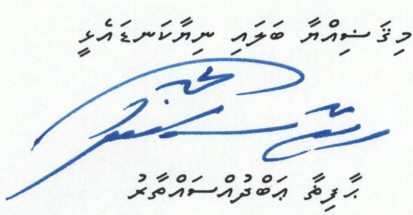 މިޤަޟިއްޔާ ބަލައި ނިޔާކަނޑައެޅީ
ޙާފިޡް ޢަބްދުއްސައްތާރު